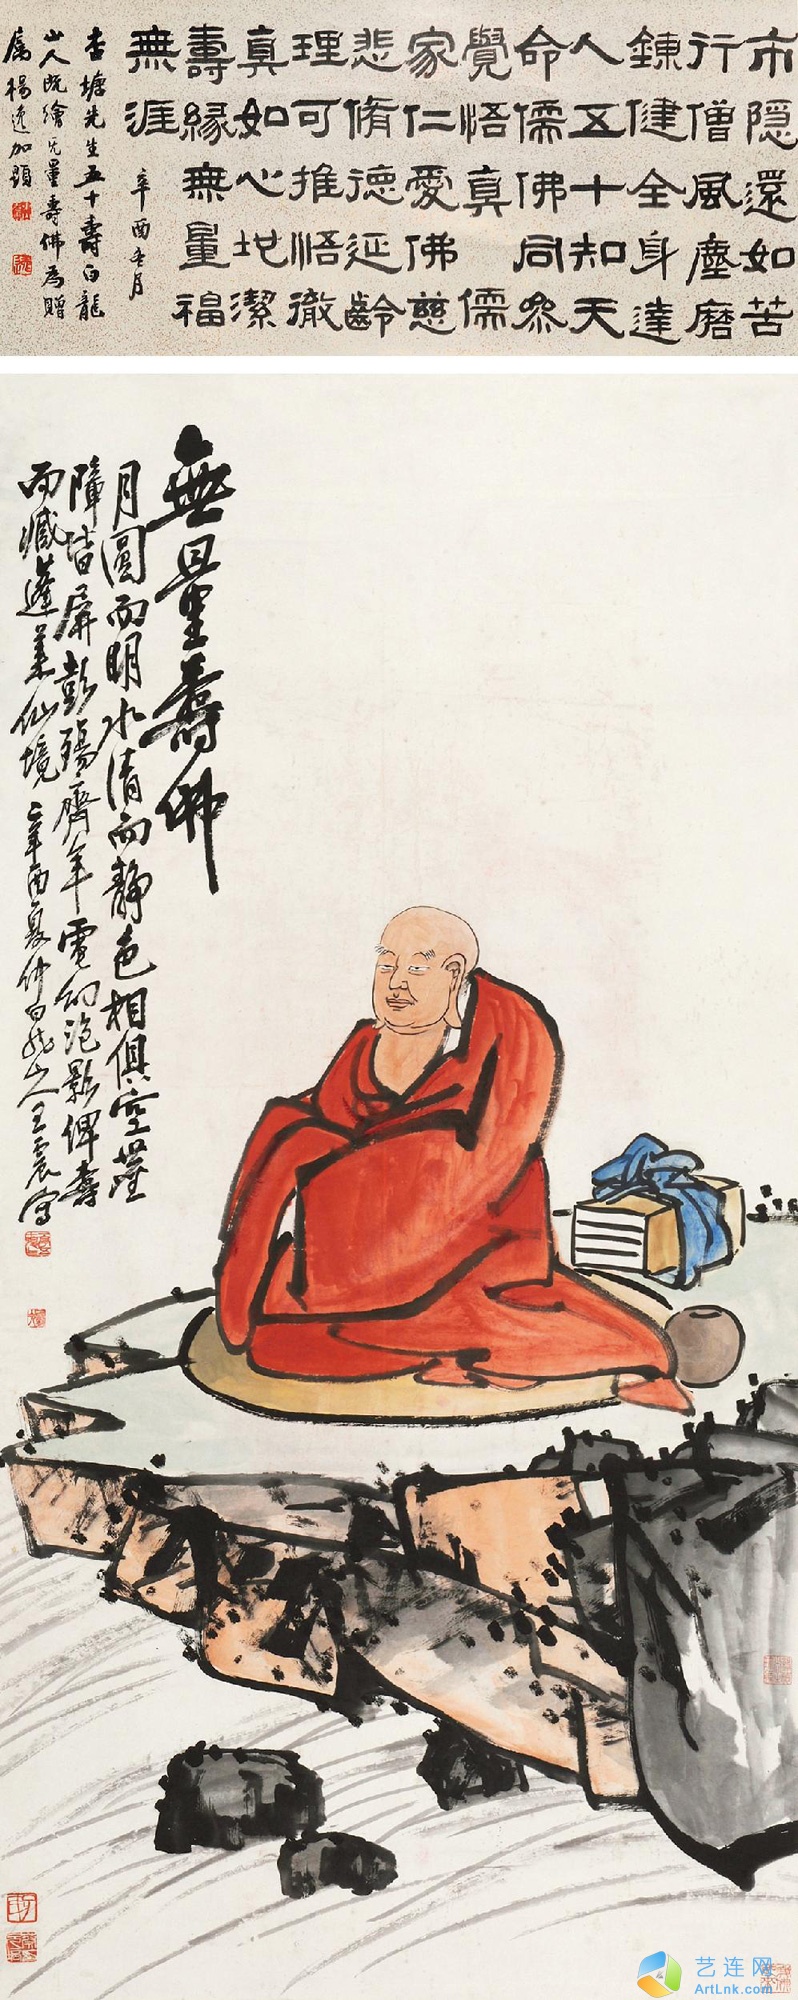 市隱還如苦
行僧風塵磨
鍊健全身達
人五十知天
命儒佛同參
覺悟真儒
家仁愛佛慈
悲脩德延齡
理可推悟徹
真如心地潔
壽緣無量福
無涯
辛酉冬月
杏塘先生五十壽白龍
山人既繪无量壽佛為贈
屬楊逸加題
無量壽佛
月圓而明水清而靜色相俱空
障皆屏彭殤齊年電幻泡影俾壽
而臧蓬萊仙境辛酉夏仲白龍山人王震寫
艺连网
ArtLnk.com